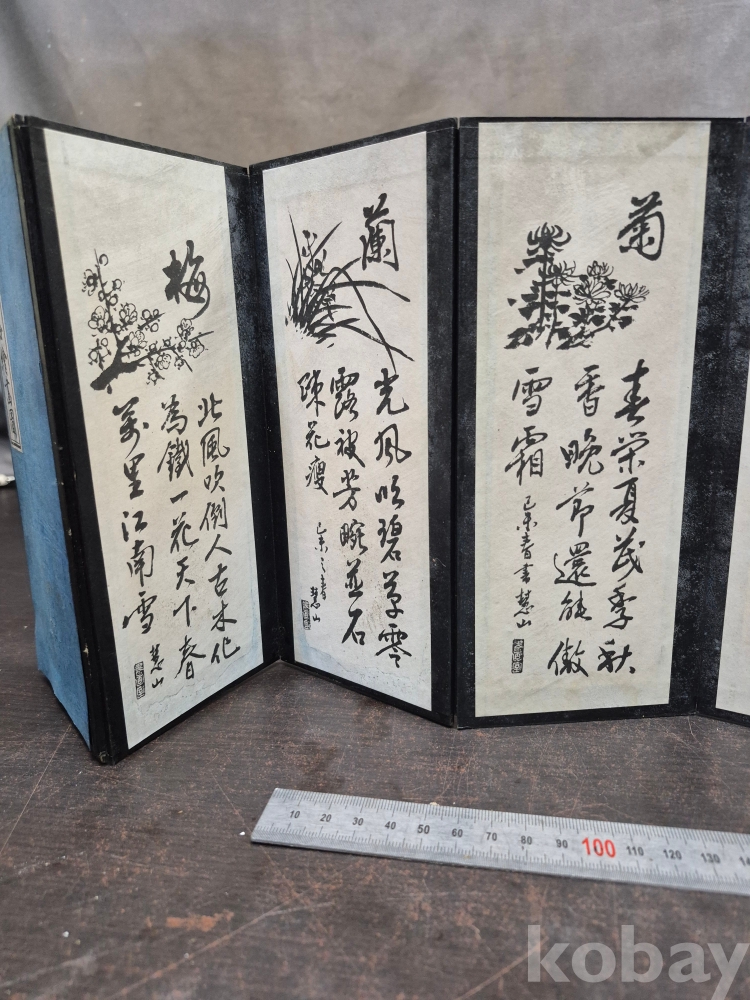 梅
北風吹倒人古木化
為鐵一花天下春
萬里江南雪
慧山
蘭
光風吹碧草零
露被芳畹並石
疎花瘦
己未之春
慧山
菊
春榮夏茂季秋
香晚節還能傲
雪霜
己未春書慧山
10 20 30 40 50 60 70 80 90 100 110 120 130
kobay